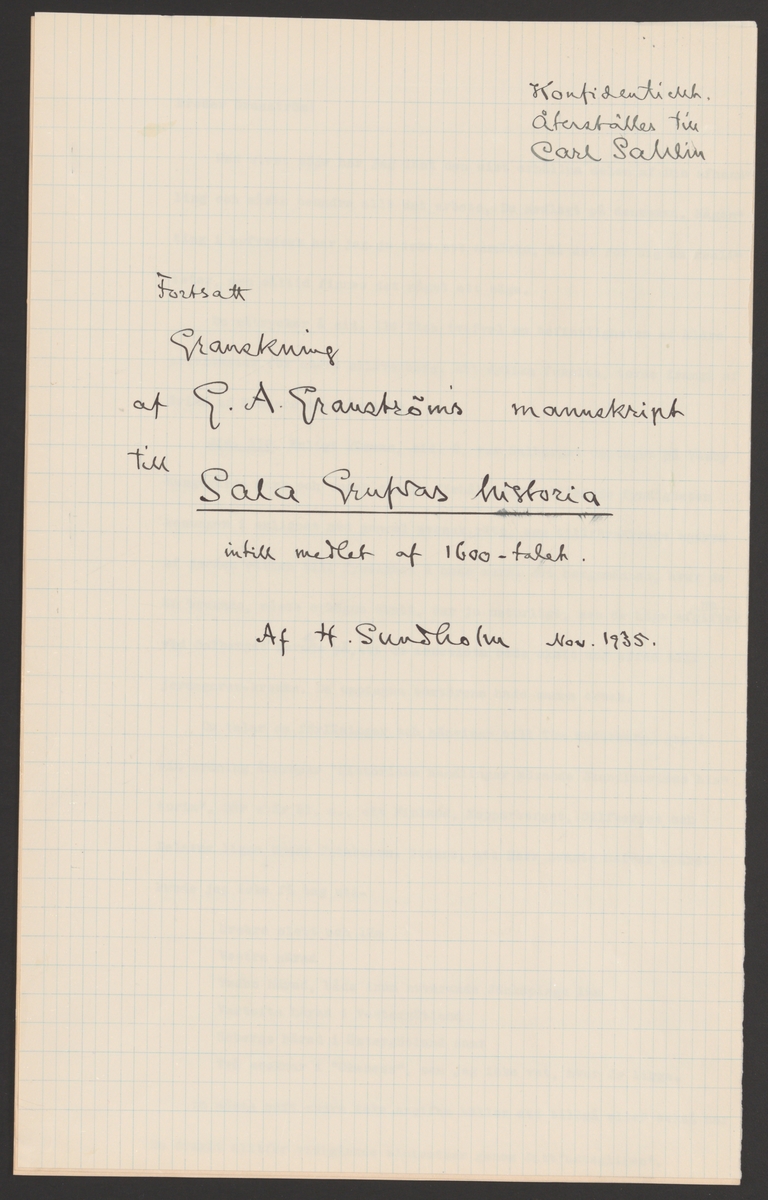 Konfidentiellt.
Återställes till
Carl Sahlin
Fortsatt
Granskning
af G. A. Granström's manuskript
till
Sala Grufvas historia
intill medlet af 1600-talet.
Af H. Sundholm Nov. 1935.